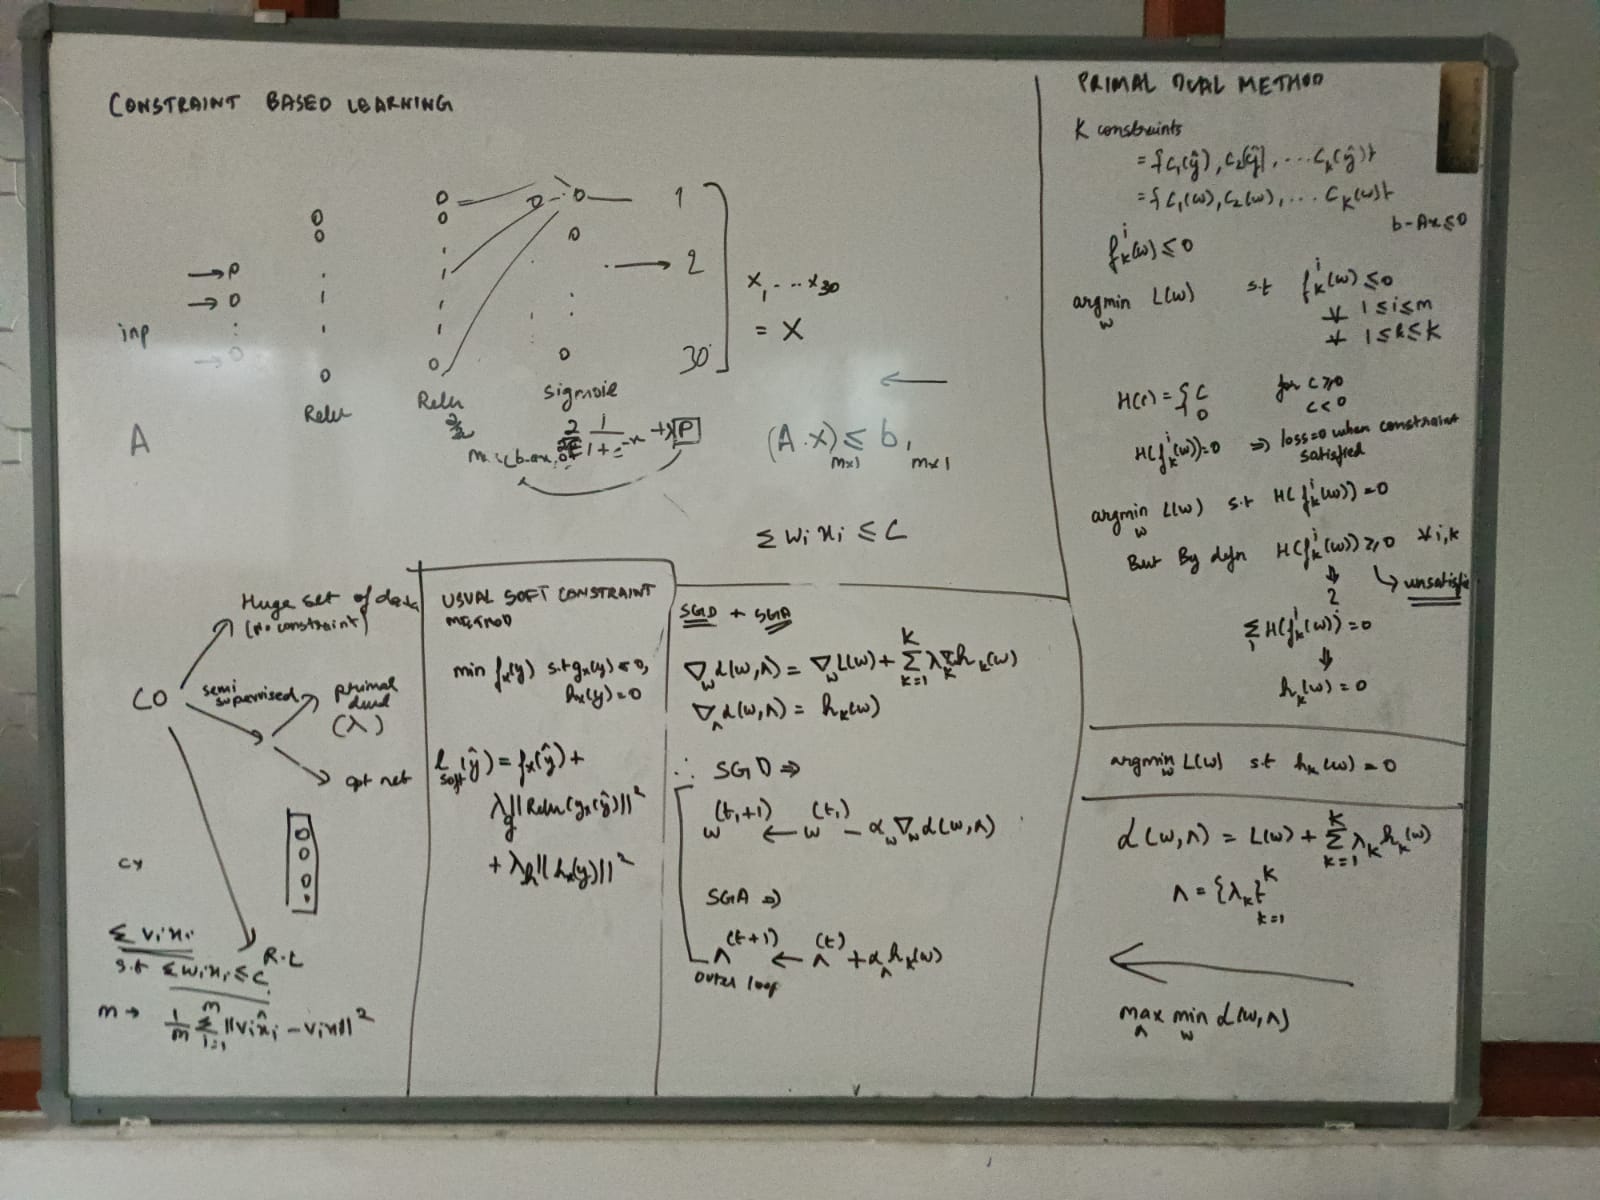 CONSTRAINT BASED LEARNING
1
2
30
inp
Relu
Relu
Sigmoie
x₁ ... x₃₀
= X
A
(A·x) ≤ b,
mx1 mx1
Σ wᵢxᵢ ≤ C
CO
Huge set of data
(no constraint)
semi
supervised
primal
dual
(λ)
opt net
R.L
Σ vᵢxᵢ
s.t Σ wᵢxᵢ ≤ C
m → 1/m Σᵢ₌₁ᵐ ||vᵢx̂ᵢ - vᵢxᵢ||²
USUAL SOFT CONSTRAINT
METHOD
min fₓ(y) s.t gₓ(y) ≤ 0,
hₓ(y) = 0
l_soft(ŷ) = fₓ(ŷ) +
λ_g ||Relu(gₓ(ŷ))||²
+ λ_h ||hₓ(y)||²
SGD + SGA
∇_w L(w,Λ) = ∇_w L(w) + Σₖ₌₁ᴷ λₖ hₖ(w)
∇_Λ L(w,Λ) = hₖ(w)
∴ SGD ⇒
w^(t₁+1) ← w^(t₁) - α_w ∇_w L(w,Λ)
SGA ⇒
Λ^(t+1) ← Λ^(t) + α_Λ hₖ(w)
outer loop
PRIMAL DUAL METHOD
K constraints
= {C₁(ŷ), C₂(ŷ), ... Cₖ(ŷ)}
= {C₁(w), C₂(w), ... Cₖ(w)}
b-Ax ≤ 0
fₖⁱ(w) ≤ 0
argmin_w L(w) s.t fₖⁱ(w) ≤ 0
∀ 1 ≤ i ≤ m
∀ 1 ≤ k ≤ K
H(c) = { C for C ≥ 0
0 C < 0
H(fₖⁱ(w)) = 0 ⇒ loss=0 when constraint
satisfied
argmin_w L(w) s.t H(fₖⁱ(w)) = 0
But By defn H(fₖⁱ(w)) ≥ 0 ∀ i,k
⇓ ↳ unsatisfie
Σᵢ H(fₖⁱ(w)) = 0
⇓
hₖ(w) = 0
argmin_w L(w) s.t hₖ(w) = 0
L(w,Λ) = L(w) + Σₖ₌₁ᴷ λₖ hₖ(w)
Λ = {λₖ}ₖ₌₁ᴷ
max_Λ min_w L(w,Λ)